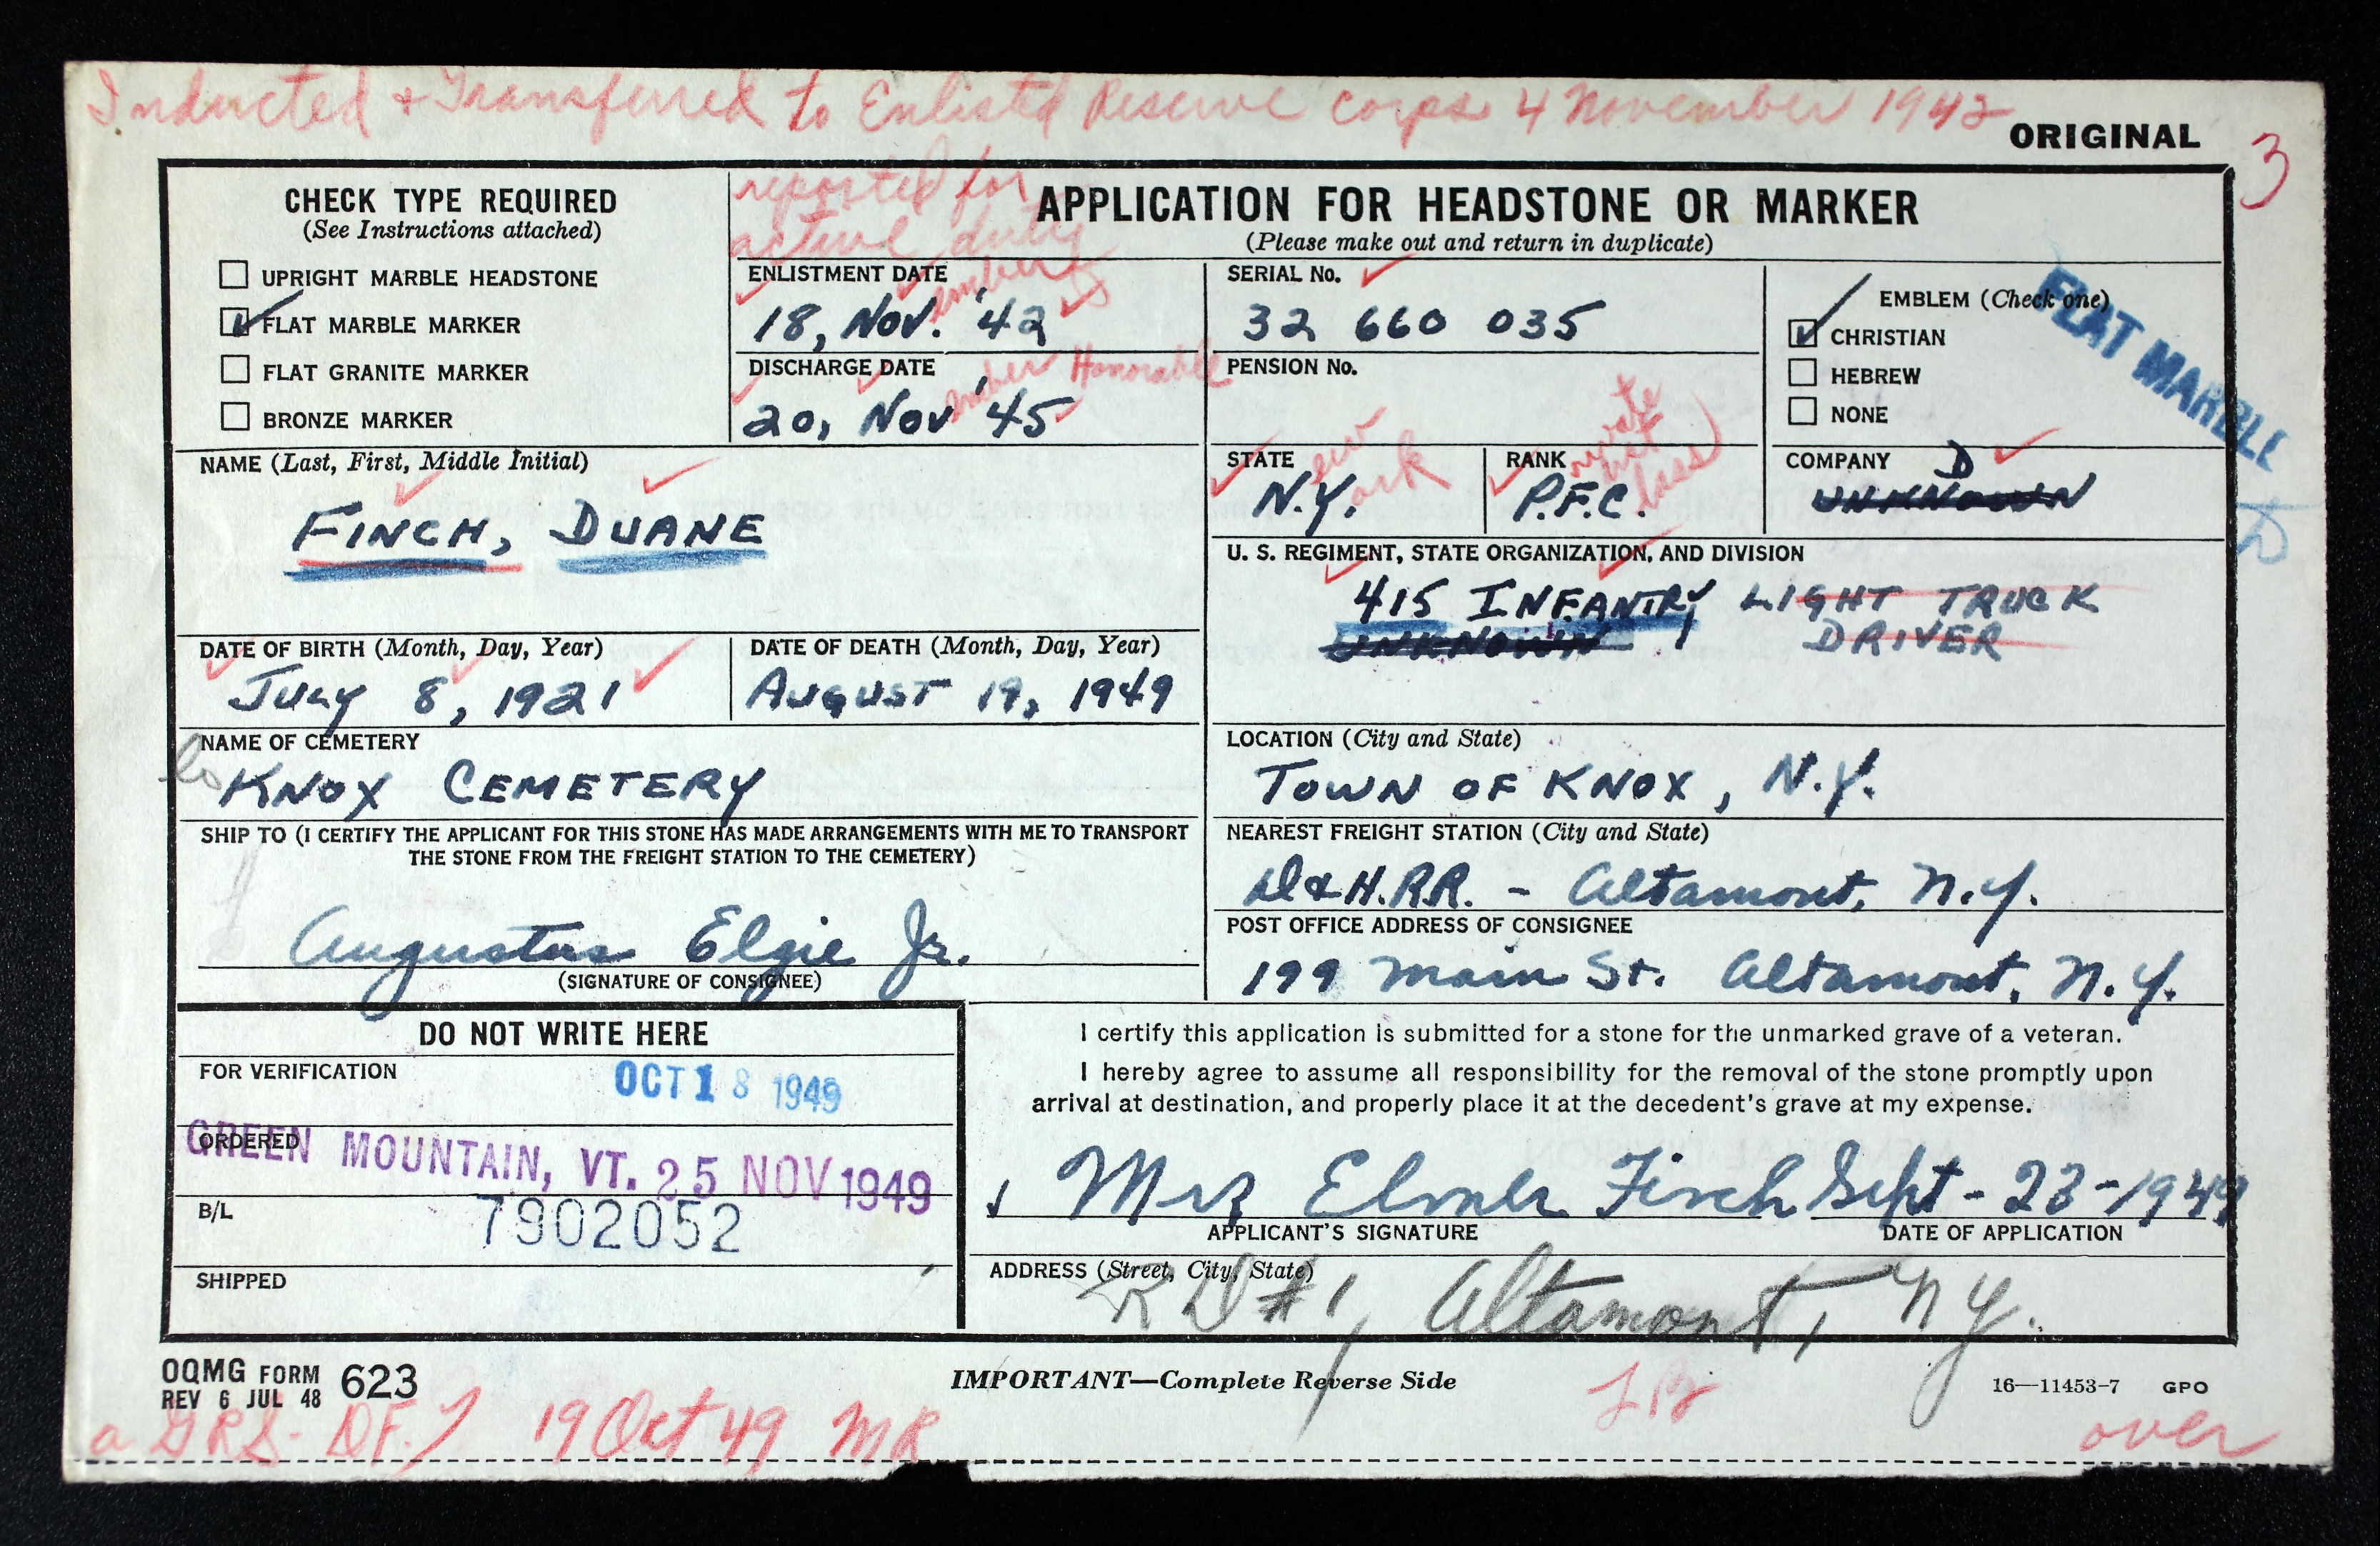 Inducted & Transferred to Enlisted Reserve Corps 4 November 1942
ORIGINAL
3
CHECK TYPE REQUIRED
(See Instructions attached)
UPRIGHT MARBLE HEADSTONE
FLAT MARBLE MARKER
FLAT GRANITE MARKER
BRONZE MARKER
reported for
active duty
APPLICATION FOR HEADSTONE OR MARKER
(Please make out and return in duplicate)
ENLISTMENT DATE
18, Nov. ember '42
DISCHARGE DATE
20, Nov ember '45 Honorable
SERIAL No.
32 660 035
PENSION No.
EMBLEM (Check one)
CHRISTIAN
HEBREW
NONE
FLAT MARBLE
NAME (Last, First, Middle Initial)
FINCH, DUANE
STATE
N.Y. ew ork
RANK
P.F.C. rivate irst lass
COMPANY D
UNKNOWN
U. S. REGIMENT, STATE ORGANIZATION, AND DIVISION
415 INFANTRY, LIGHT TRUCK
UNKNOWN DRIVER
DATE OF BIRTH (Month, Day, Year)
JULY 8, 1921
DATE OF DEATH (Month, Day, Year)
AUGUST 19, 1949
NAME OF CEMETERY
KNOX CEMETERY
LOCATION (City and State)
TOWN OF KNOX, N.Y.
SHIP TO (I CERTIFY THE APPLICANT FOR THIS STONE HAS MADE ARRANGEMENTS WITH ME TO TRANSPORT
THE STONE FROM THE FREIGHT STATION TO THE CEMETERY)
Augustus Elgie Jr.
(SIGNATURE OF CONSIGNEE)
NEAREST FREIGHT STATION (City and State)
D & H.R.R. - Altamont, N.Y.
POST OFFICE ADDRESS OF CONSIGNEE
199 Main St. Altamont, N.Y.
DO NOT WRITE HERE
FOR VERIFICATION
OCT 18 1949
ORDERED
GREEN MOUNTAIN, VT. 25 NOV 1949
B/L
7902052
SHIPPED
I certify this application is submitted for a stone for the unmarked grave of a veteran.
I hereby agree to assume all responsibility for the removal of the stone promptly upon
arrival at destination, and properly place it at the decedent's grave at my expense.
Mrs Elmer Finch Sept - 23 - 1949
APPLICANT'S SIGNATURE
DATE OF APPLICATION
ADDRESS (Street, City, State)
R D #1, Altamont, N Y.
OQMG FORM 623
REV 6 JUL 48
IMPORTANT—Complete Reverse Side
16—11453-7 GPO
19 Oct 49 MR
over